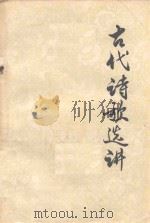 古代诗歌选讲
mtoou.info
mtoou.info